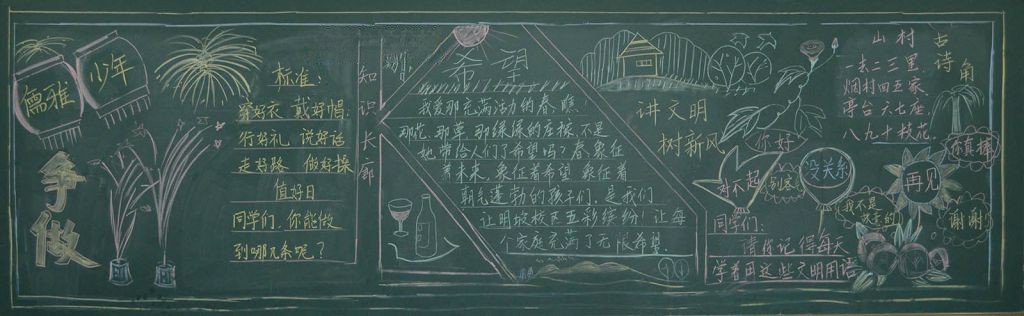 争做
儒雅
少年
标准:
穿好衣 戴好帽
行好礼 说好话
走好路 做好操
值好日
同学们,你能做
到哪几条呢?
知识长廊
希望
我爱那充满活力的春,瞧!
那花 那草 那绿绿的庄稼,不是
她带给人们了希望吗?春象征
着未来,象征着希望 象征着
朝气蓬勃的孩子们,是我们
让明坡校区五彩缤纷!让每
个家庭充满了无限希望
讲文明
树新风
古诗角
山村
一去二三里
烟村四五家
亭台六七座
八九十枝花
你好
对不起
别客
没关系
我不是
故意的
再见
你真棒
谢谢
同学们:
请你记得每天
学着用这些文明用语